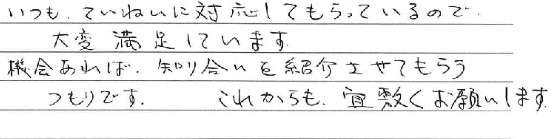 いつも、ていねいに対応してもらっているので、
大変満足しています。
機会あれば、知り合いを紹介させてもらう
つもりです。 これからも、宜敷くお願いします